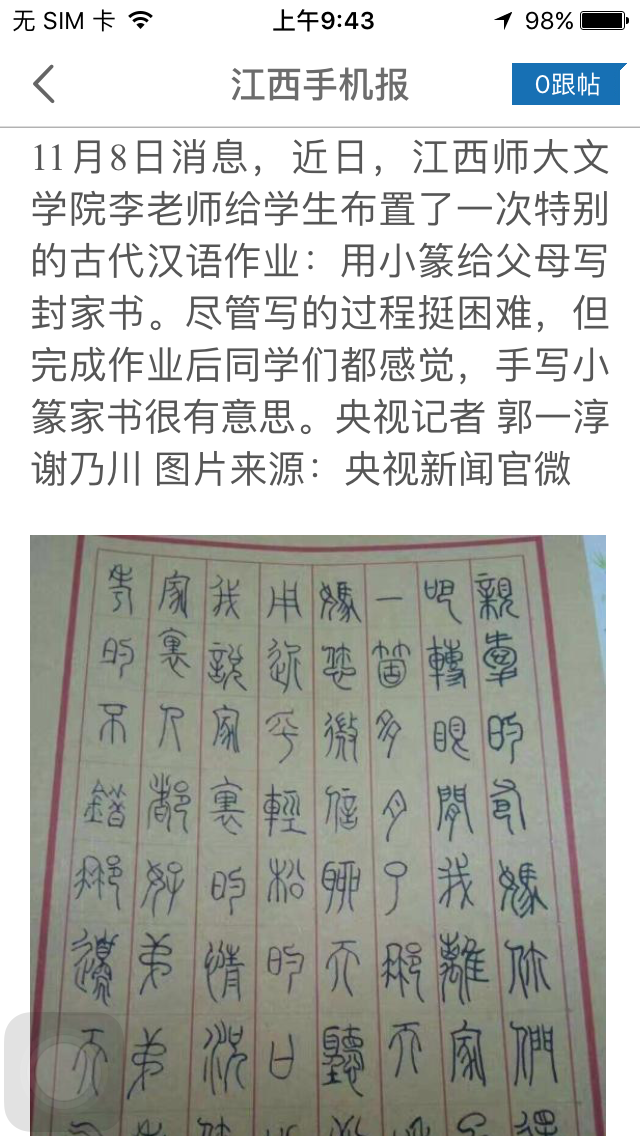 无 SIM 卡 上午9:43 98%
江西手机报 0跟帖
11月8日消息，近日，江西师大文
学院李老师给学生布置了一次特别
的古代汉语作业：用小篆给父母写
封家书。尽管写的过程挺困难，但
完成作业后同学们都感觉，手写小
篆家书很有意思。央视记者 郭一淳
谢乃川 图片来源：央视新闻官微
親愛的爸媽你們還
吧轉眼間我離家
一箇多月了那天
媽您微信聊天聽
用近乎輕松的口
我說家裏的情況
家裏人都好弟弟
的不錯那邊天